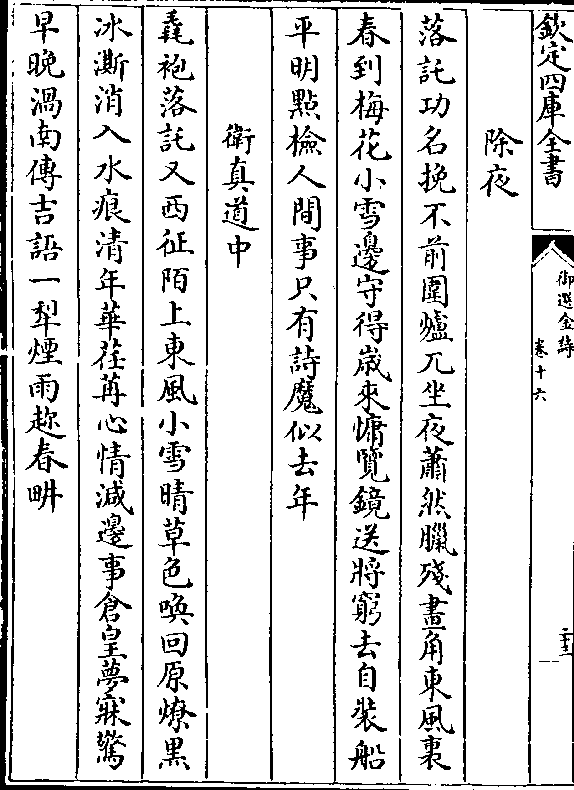 欽定四庫全書
御選金詩
卷十六
二十二
除夜
落託功名挽不前圍爐兀坐夜蕭然臘殘畫角東風裏
春到梅花小雪邊守得嵗來慵覽鏡送將窮去自裝船
平明點檢人間事只有詩魔似去年
衛真道中
毳袍落託又西征陌上東風小雪晴草色喚回原燎黒
冰澌消入水痕清年華荏苒心情減邊事倉皇夢寐驚
早晚渦南傳吉語一犂煙雨趂春畊